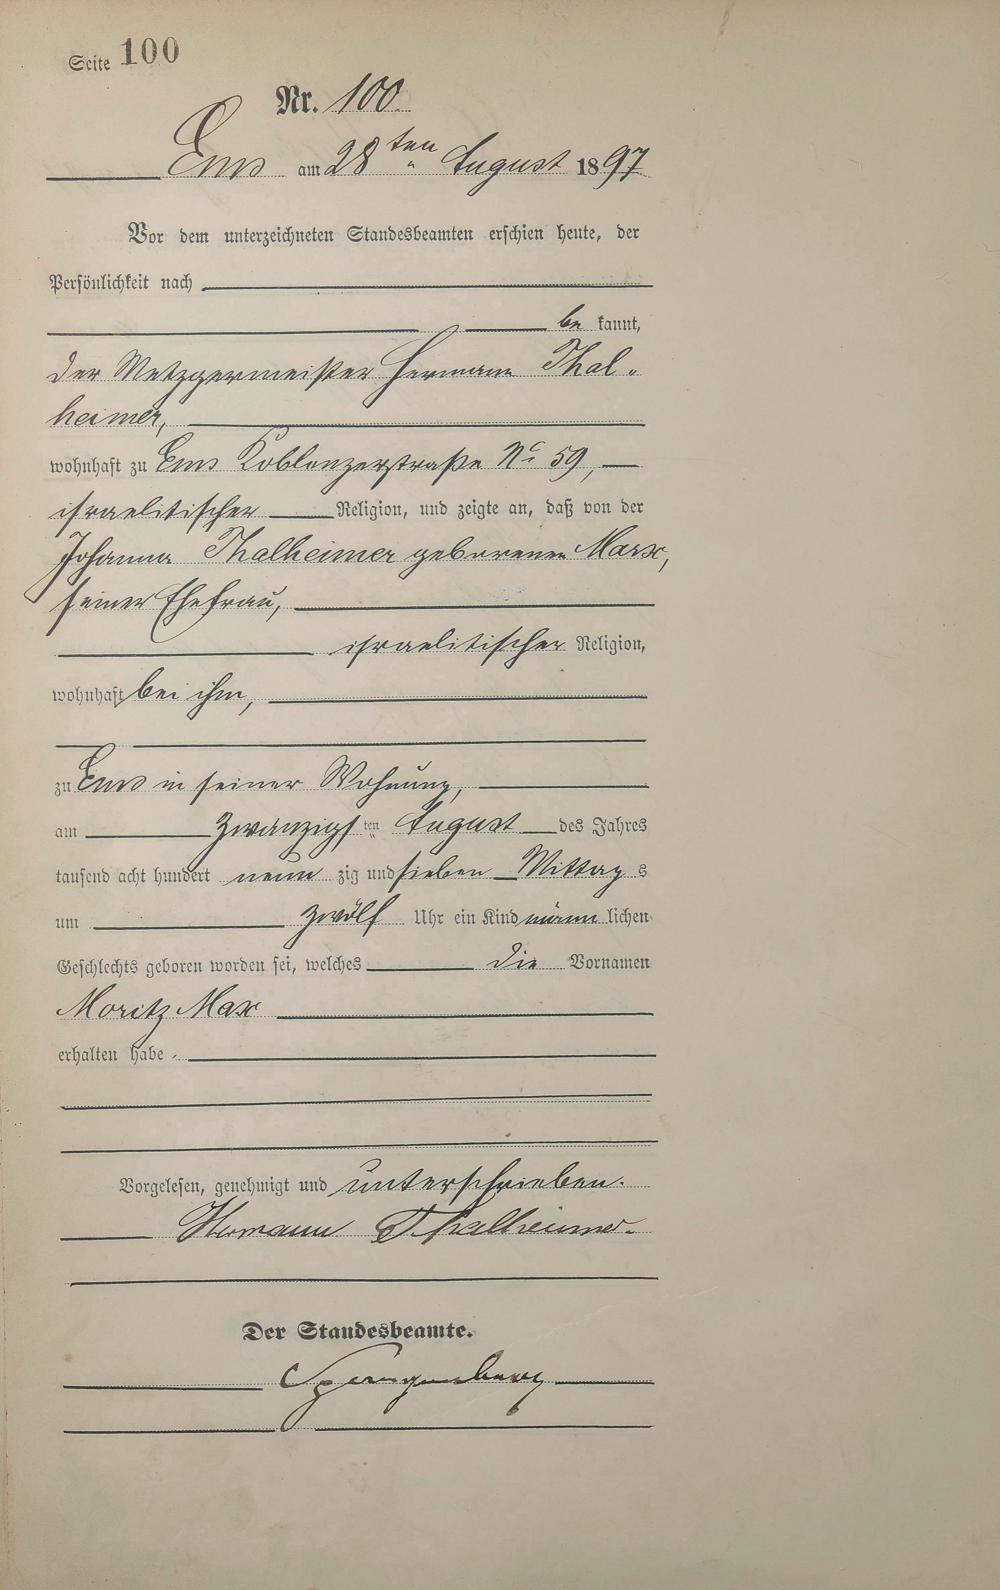 Seite 100
Nr. 100.
Ems am 28ten August 1897
Vor dem unterzeichneten Standesbeamten erschien heute, der
Persönlichkeit nach
be kannt,
der Metzgermeister Hermann Thal-
heimer,
wohnhaft zu Ems Koblenzerstraße No 59,
israelitischer Religion, und zeigte an, daß von der
Johanna Thalheimer geborenen Marx,
seiner Ehefrau,
israelitischer Religion,
wohnhaft bei ihm,
zu Ems in seiner Wohnung,
am zwanzigsten August des Jahres
tausend acht hundert neun zig und sieben Mittag s
um zwölf Uhr ein Kind männ lichen
Geschlechts geboren worden sei, welches die Vornamen
Moritz Max
erhalten habe.
Vorgelesen, genehmigt und unterschrieben.
Hermann Thalheimer.
Der Standesbeamte.
Spangenberg